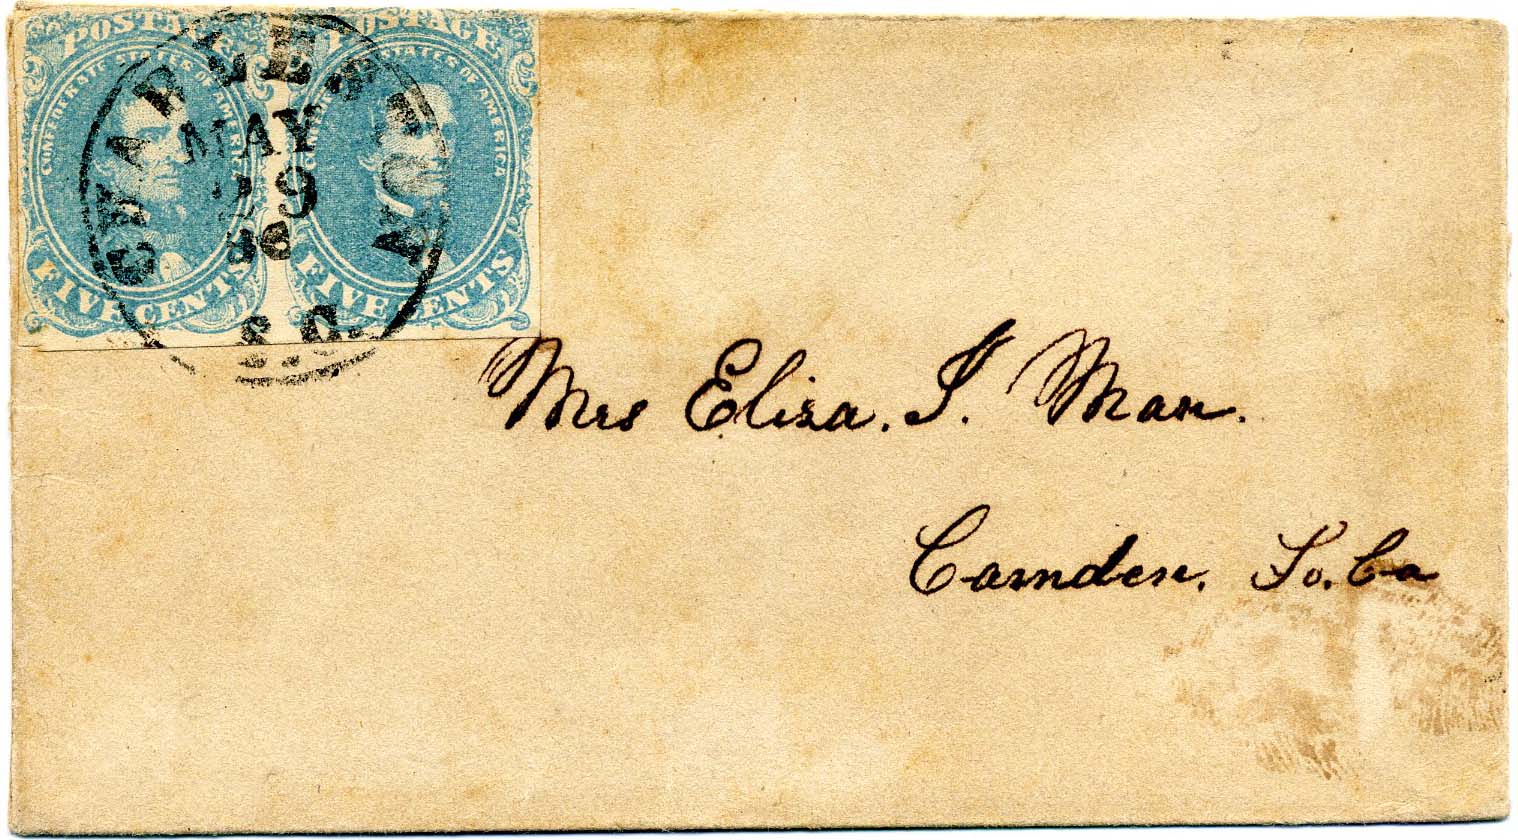 POSTAGE
CONFEDERATE STATES OF AMERICA
FIVE CENTS
POSTAGE
STATES OF AMERICA
FIVE CENTS
CHARLESTON
MAY
29
S.C.
Mrs Eliza. I. Man.
Camden. So. Ca